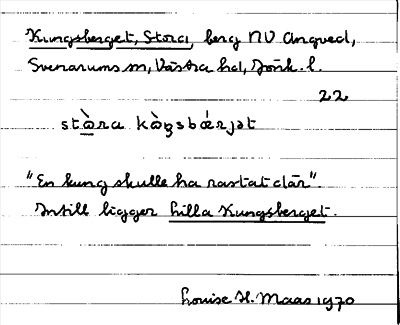 Kungsberget, Stora, berg NV Angved,
Svenarums sn, Västra hd, Jönk. l.
22
"En kung skulle ha rastat där".
Intill ligger Lilla Kungsberget.
Louise H. Maas 1970